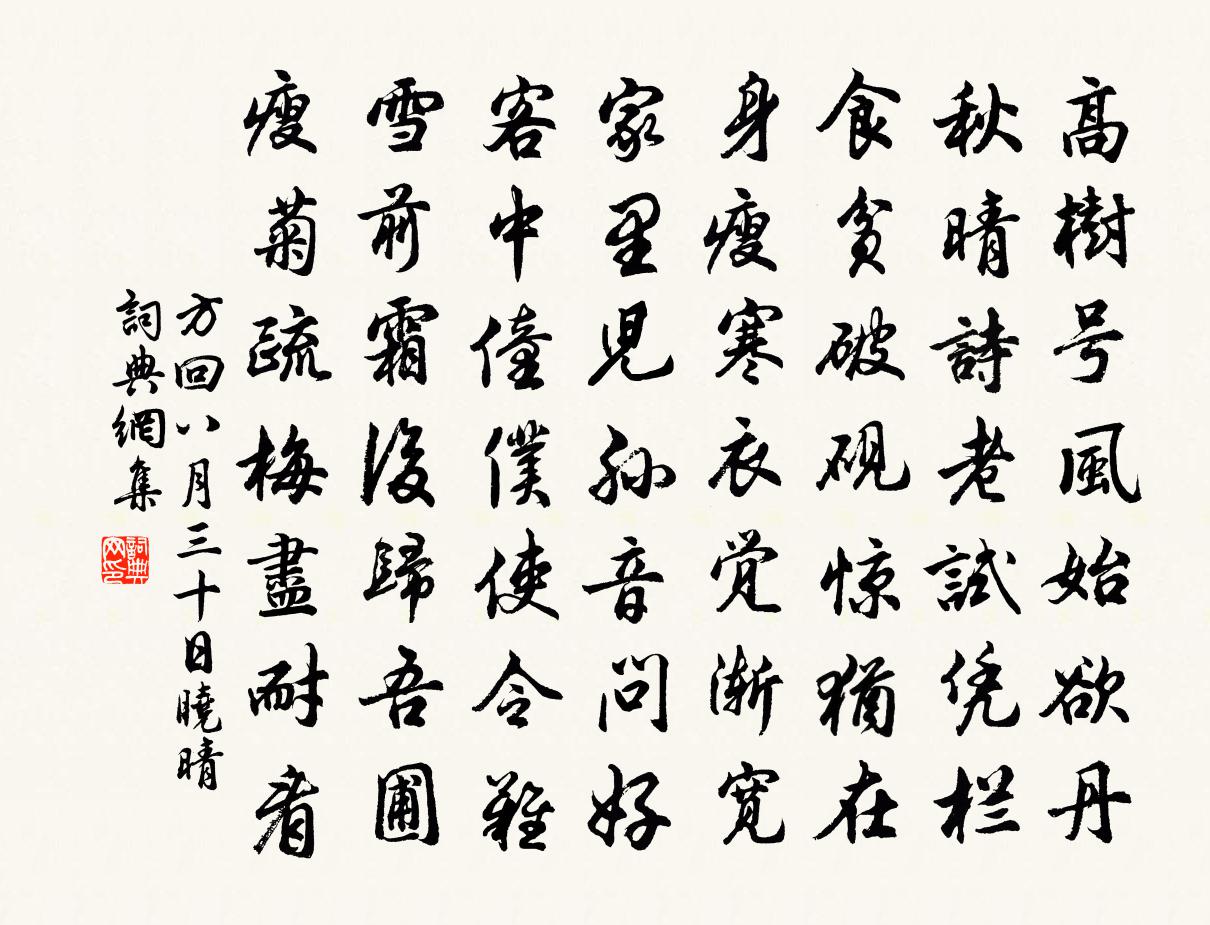 高樹号風始欲丹
秋晴詩老試凭栏
食貧破砚惊猶在
身瘦寒衣觉渐寬
家里児孙音问好
客中僮僕使令難
雪前霜後歸吾圃
瘦菊疏梅盡耐看
方回八月三十日曉晴
詞典網集
詞典网印